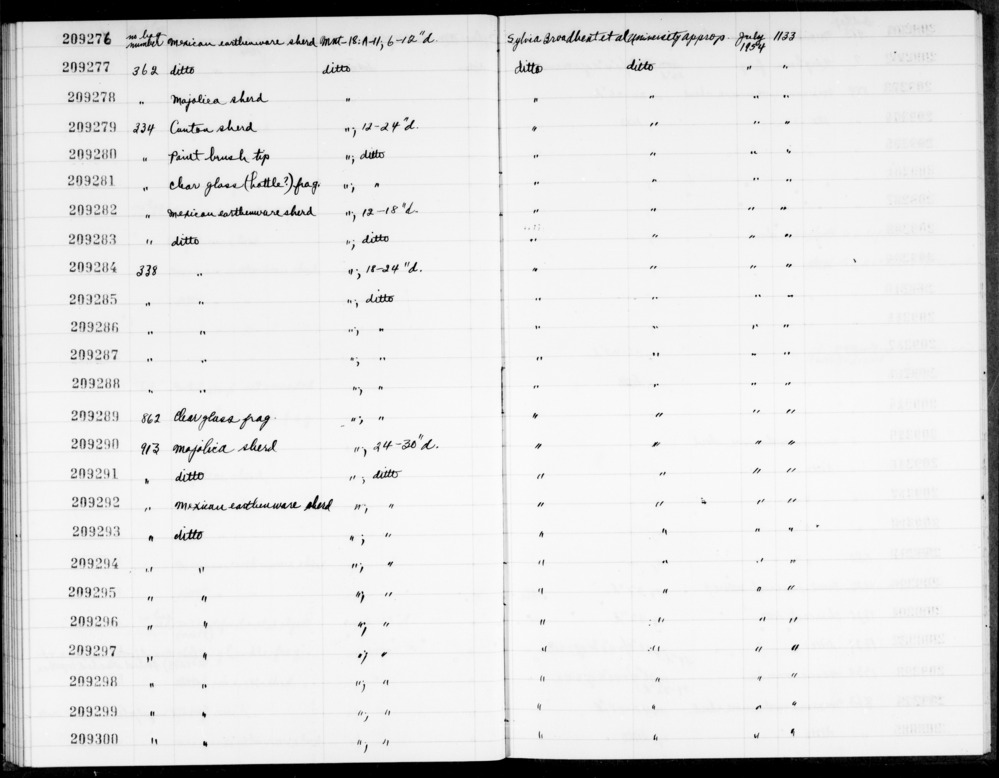 209276 no lot number Mexican earthenware sherd Mnt-18: A-11; 6-12"d. Sylvia Broadbent et al University approp. July 1954 1133
209277 362 ditto ditto ditto ditto " "
209278 " Majolica sherd " " " " "
209279 334 Canton sherd "; 12-24"d. " " " "
209280 " Paint brush tip "; ditto " " " "
209281 " Clear glass (bottle?) frag. "; " " " " "
209282 " Mexican earthenware sherd "; 12-18"d. " " " "
209283 " ditto "; ditto " " " "
209284 338 " "; 18-24"d. " " " "
209285 " " "; ditto " " " "
209286 " " "; " " " " "
209287 " " "; " " " " "
209288 " " "; " " " " "
209289 862 Clear glass frag. "; " " " " "
209290 913 Majolica sherd "; 24-30"d. " " " "
209291 " ditto "; ditto " " " "
209292 " Mexican earthenware sherd "; " " " " "
209293 " ditto "; " " " " "
209294 " " "; " " " " "
209295 " " "; " " " " "
209296 " " "; " " " " "
209297 " " "; " " " " "
209298 " " "; " " " " "
209299 " " "; " " " " "
209300 " " "; " " " " "